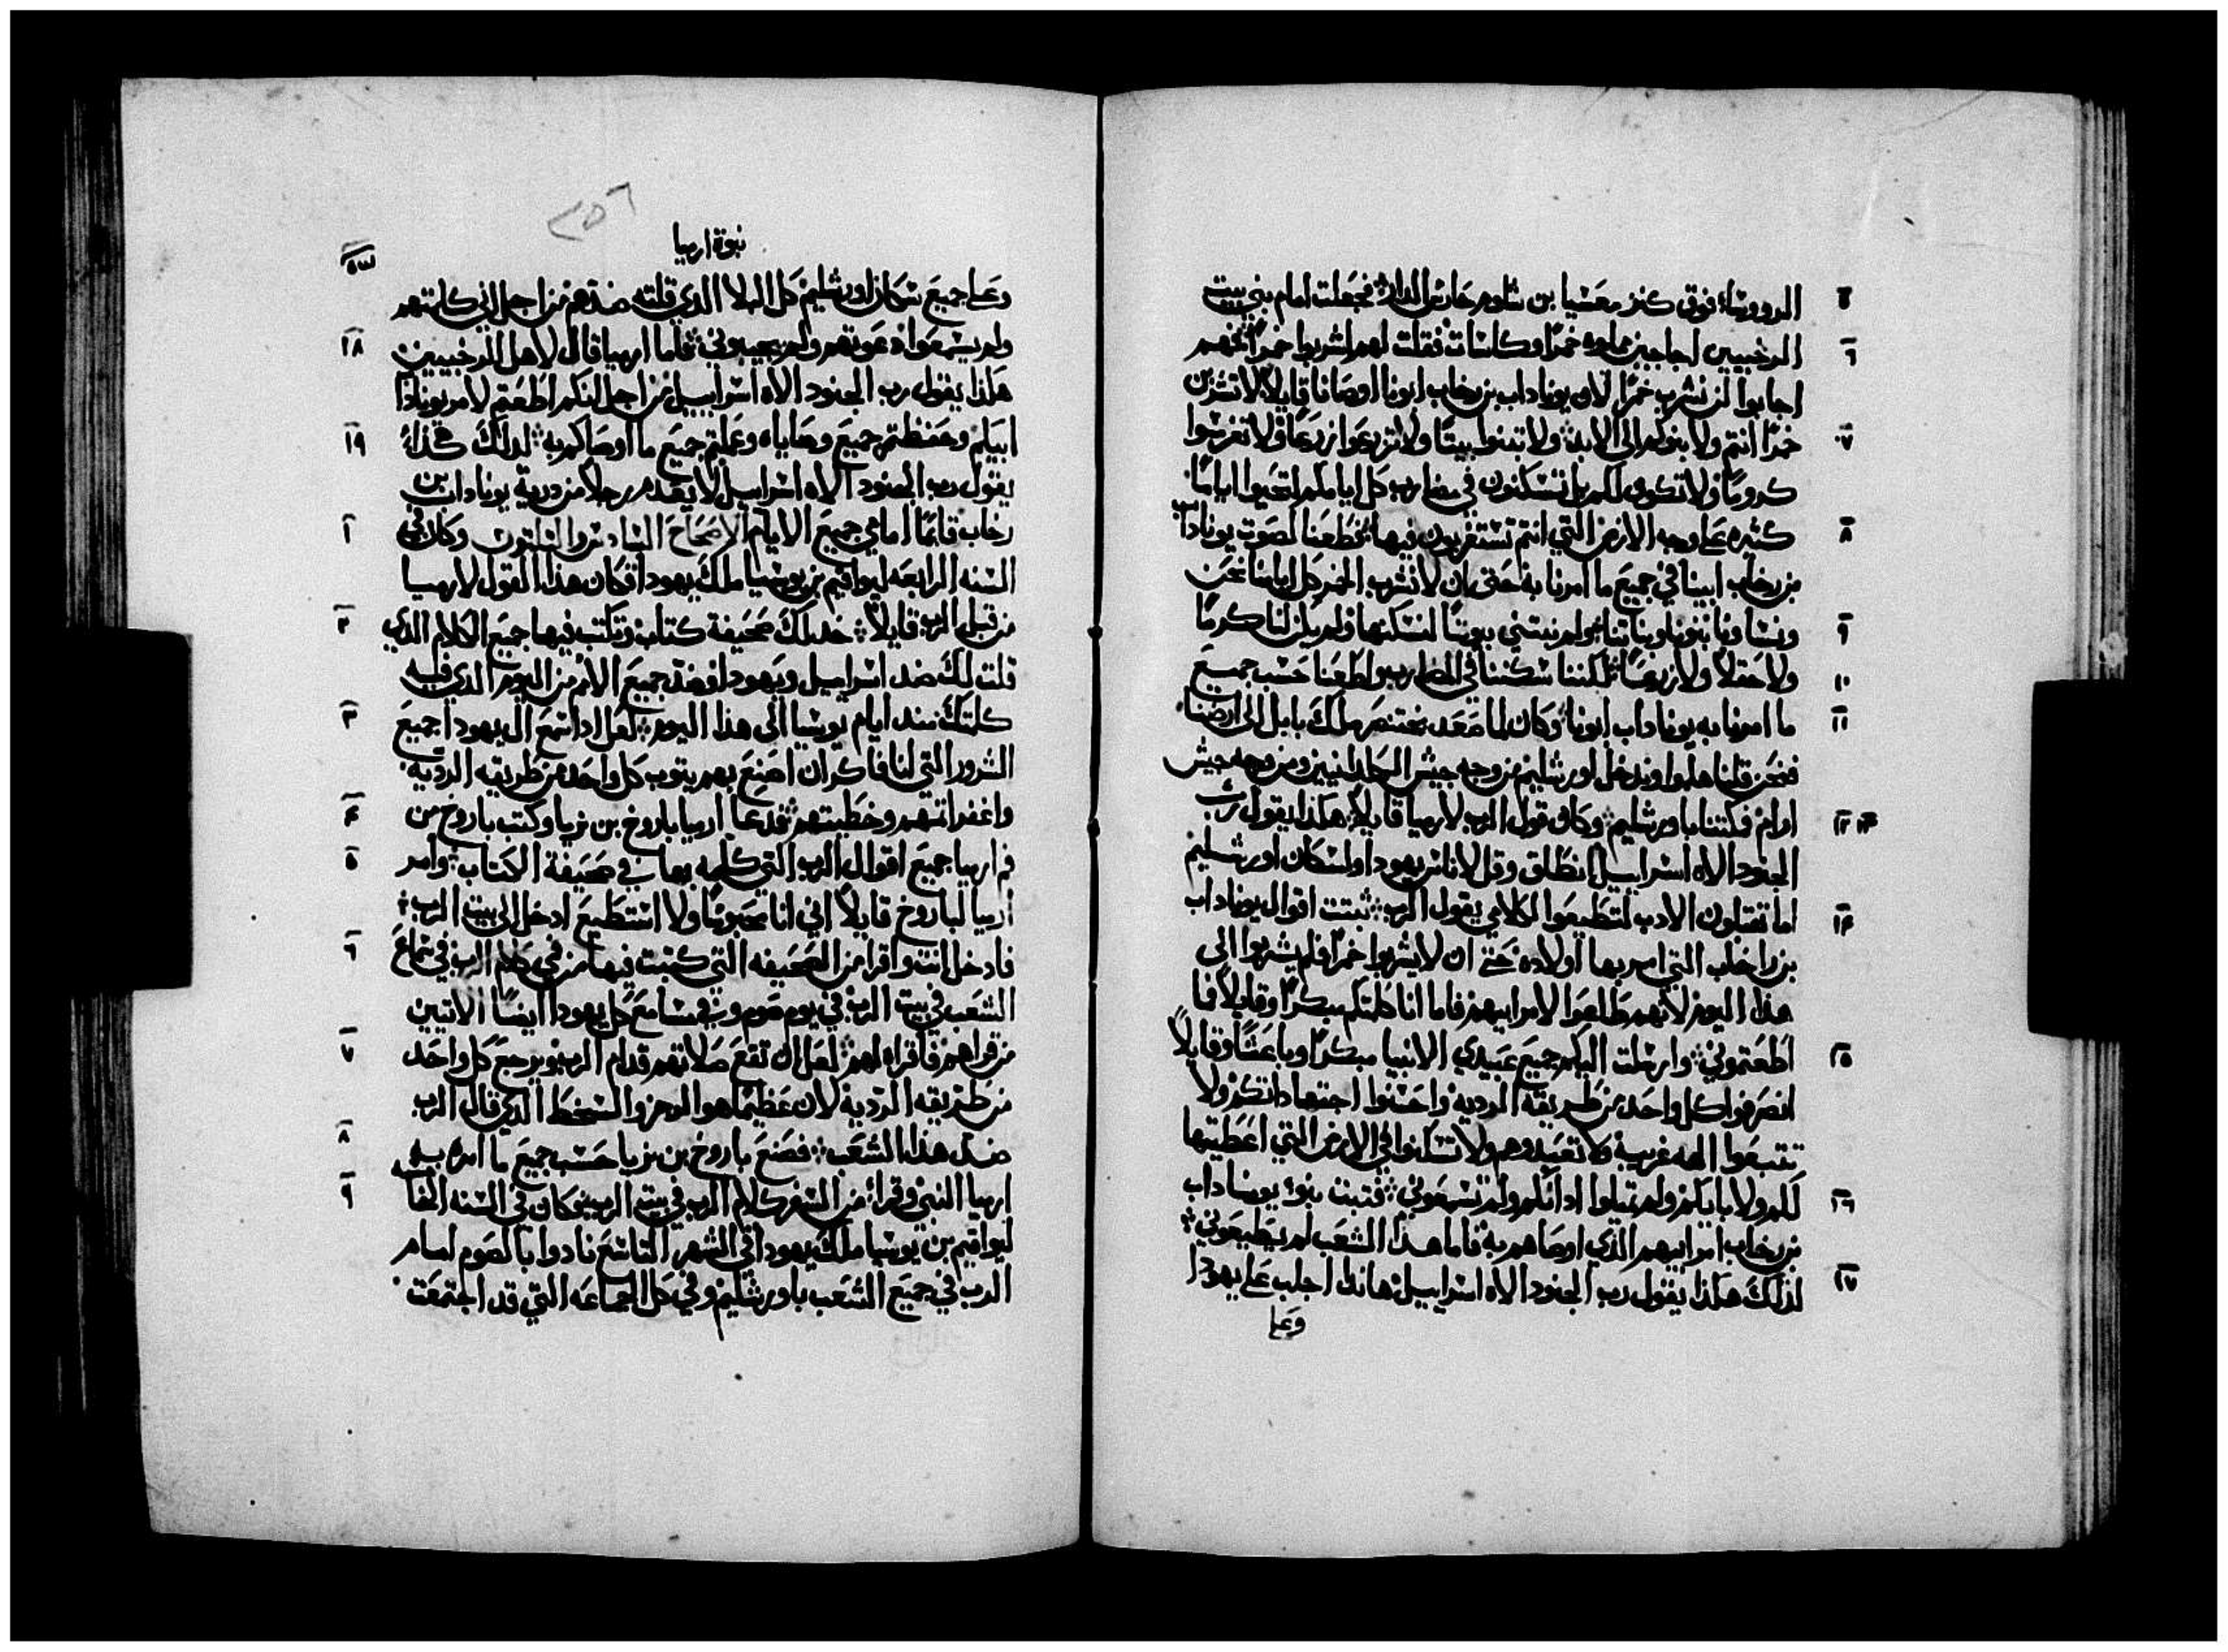 الرووساء فوق كنز معشيا بن شلوم حارس الدار فجعلت امام بني بيت
٥
الرخبيين اجاجين مملوه خمرًا وكاسات فقلت لهم اشربوا خمرًا فهم
٦
اجابوا لن نشرب خمرًا لان يوناداب بن رخاب ابونا اوصانا قايلًا لا تشربن
خمرًا انتم ولا بنوكم الي الابد ولا تبنوا بيتًا ولا تزرعوا زرعًا ولا تغرسوا
٧
كرومًا ولا تكون لكم بل تسكنون في مضارب كل ايامكم لتحيوا ايامًا
كثيره علي وجه الارض التي انتم تستغربون فيها فخطعنا لصوت يوناداب
٨
بن رخاب ابينا في جميع ما امرنا به حتي ان لا نشرب الخمر كل ايامنا نحن
ونسانا وبنونا وبناتنا ولم نبتني بيوتًا لنسكنها ولم يكن لنا كرمًا
٩
ولا حقلًا ولا زرعًا لكننا سكننا في المضارب واطعنا حسب جميع
١٠
ما امرنا به يوناداب ابونا وكان لما صعد بختنصر ملك بابل الي ارضنا
١١
فنحن قلنا هلموا وندخل اورشليم من وجه جيش الكلدانيين ومن وجه جيش
ارام فمكثنا باورشليم وكان قول الرب لارميا قايلًا هكذا يقول رب
١٢ ١٣
الجنود الاه اسراييل انطلق وقل لاناس يهودا ولسكان اورشليم
اما تقبلون الادب لتطيعوا لكلامي يقول الرب ثبتت اقوال يوناداب
١٤
بن راخاب التي امر بها اولاده حتي ان لا يشربوا خمرًا فلم يشربوا الي
هذا اليوم لانهم طاعوا الامر ابيهم فاما انا كلمتكم مبكرًا وقايلًا فما
اطعتموني وارسلت اليكم جميع عبيدي الانبيا مبكرًا وباعثًا وقايلًا
١٥
انصرفوا كل واحد من طريقه الرديه واحسنوا اجتهاداتكم ولا
تتبعوا الهه غريبة ولا تعبدوهم ولا تسكنوا في الارض التي اعطيتها
لكم ولاباياكم ولم تميلوا اذانكم ولم تسمعوني فثبت بنوء يوناداب
١٦
بن رخاب امر ابيهم الذي اوصاهم به فاما هذا الشعب لم يطيعوني
لذلك هكذا يقول رب الجنود الاه اسراييل هانذا اجلب علي يهودا
١٧
وعلي
٢٥٦
نبوة ارميا
وعلي جميع سكان اورشليم كل البلا الذي قلته ضدهم من اجل اني كلمتهم
ولم يسمعوا دعوتهم ولم يجيبوني فاما ارميا قال لاهل الرخبيين
١٨
هكذا يقول رب الجنود الاه اسراييل من اجل انكم اطعتم لامر يوناداب
ابيكم وحفظتم جميع وصاياه وعملتم جميع ما اوصاكم به لذلك هكذا
١٩
يقول رب الجنود الاه اسراييل لا يعدم رجلًا من درية يوناداب بن
رخاب قايمًا امامي جميع الايام الاصحاح السادس والثلثون وكان في
١
السنه الرابعه ليواقيم بن يوشيا ملك يهودا فكان هذا القول لارميا
من قبل الرب قايلًا خد لك صحيفة كتاب وتكتب فيها جميع الكلام الذي
٢
قلت لك ضد اسراييل ويهودا وضد جميع الامم من اليوم الذي فيه
كلمتك مند ايام يوشيا الي هذا اليوم لعل اذا سمع ال يهودا جميع
٣
الشرور التي انا فاكر ان اصنع بهم يتوب كل واحد من طريقه الرديه
واغفر اثمهم وخطيتهم فدعا ارميا باروخ بن نريا وكتب باروخ من
٤
فم ارميا جميع اقوال الرب التي كلمه بها في صحيفة الكتاب وامر
٥
ارميا لباروخ قايلًا اني انا محبوسًا ولا استطيع ادخل الي بيت الرب
فادخل انت واقرا من الصحيفه التي كتبت فيها من فمي كلام الرب في سماع
٦
الشعب في بيت الرب في يوم صوم وفي مسامع كل يهودا ايضًا الاتيين
من قراهم فاقراه لهم لعل ان تقع صلاتهم قدام الرب ويرجع كل واحد
٧
من طريقه الرديه لان عظيمًا هو الرجز والسخط الذي قال الرب
ضد هذا الشعب فصنع باروخ بن نريا حسب جميع ما امره به
٨
ارميا النبي وقراء من السفر كلام الرب في بيت الرب وكان في السنه الخامسه
٩
ليواقيم بن يوشيا ملك يهودا في الشهر التاسع نادوا بالصوم امام
الرب في جميع الشعب باورشليم وفي كل الجماعه التي قد اجتمعت